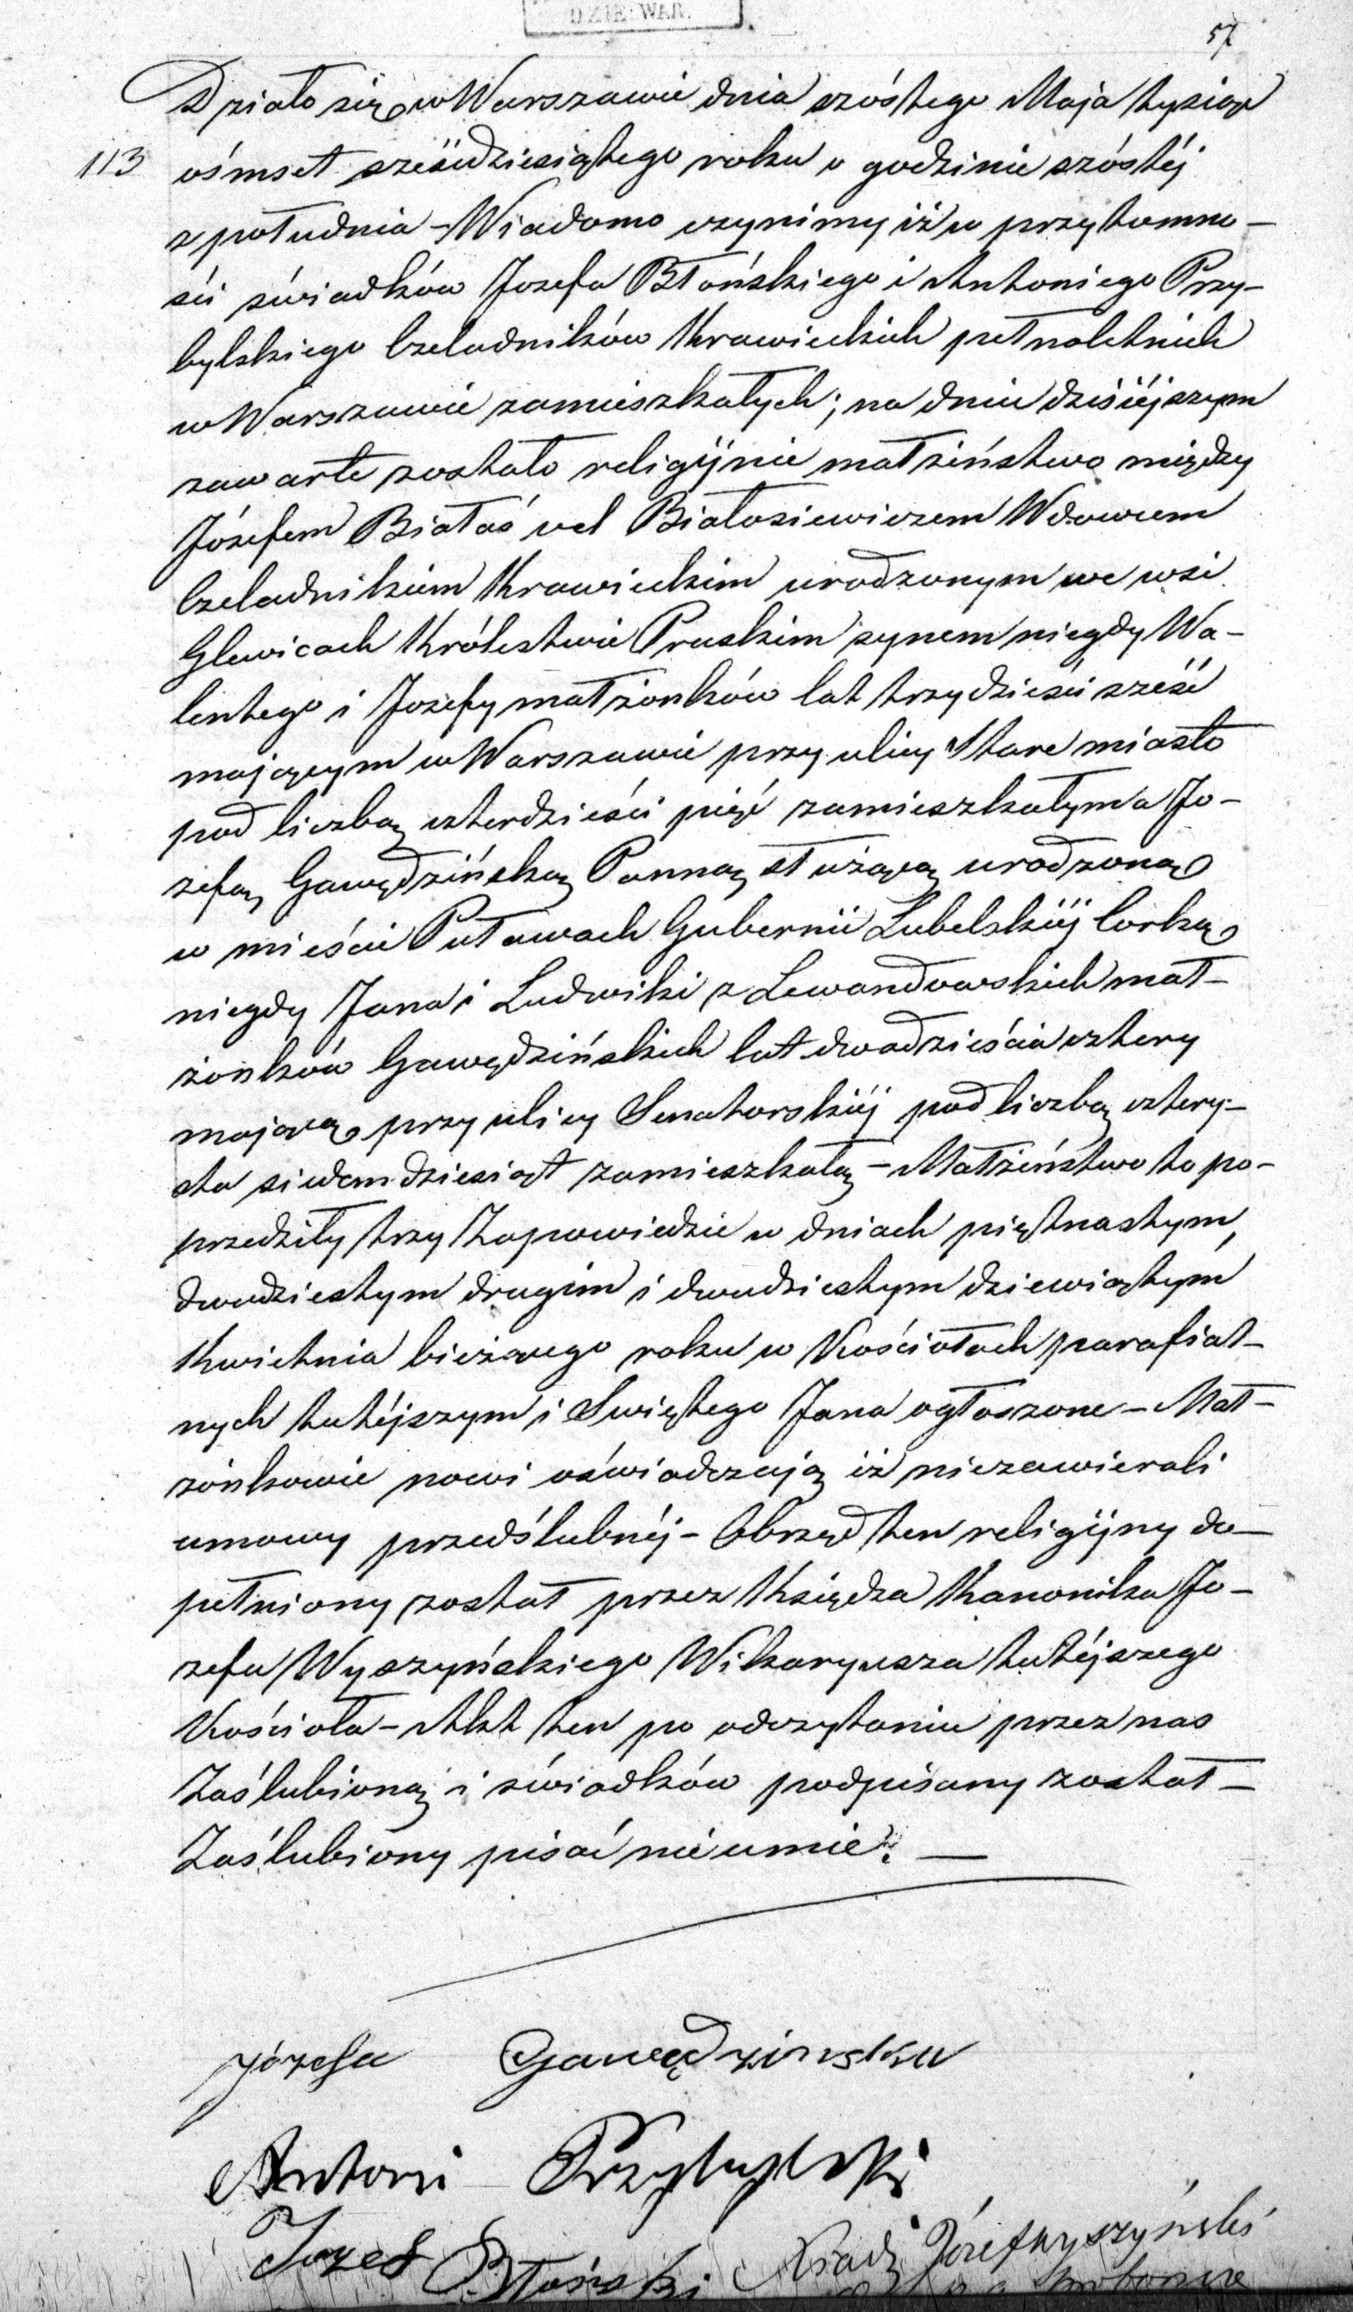 DZIE: WAR.
57
Działo się w Warszawie dnia szóstego Maja tysiąc
113 ośmset sześćdziesiątego roku o godzinie szóstéj
z południa – Wiadomo czynimy iż w przytomno–
ści świadków Jozefa Błońskiego i Antoniego Przy–
bylskiego Czeladników Krawieckich pełnoletnich
w Warszawie zamieszkałych; na dniu dzisiéjszym
zawarte zostało religijnie małżeństwo między
Józefem Białoś vel Białosiewiczem Wdowcem
Czeladnikiem Krawieckim urodzonym we wsi
Glewicach Królestwie Pruskim synem niegdy Wa–
lentego i Jozefy małżonków lat trzydzieści sześć
mającym w Warszawie przy ulicy Stare miasto
pod liczbą czterdzieści pięć zamieszkałym a Jo–
zefą Gawędzińską Panną służącą urodzoną
w mieście Puławach Gubernii Lubelskiéj Corką
niegdy Jana i Ludwiki z Lewandowskich mał–
żonków Gawędzińskich lat dwadzieścia cztery
mającą przy ulicy Senatorskiéj pod liczbą cztery–
sta siedmdziesiąt zamieszkałą – Małżeństwo to po–
przedziły trzy Zapowiedzie w dniach piętnastym,
dwudziestym drugim i dwudziestym dziewiątym
Kwietnia bieżącego roku w Kościołach parafial–
nych tutéjszym i Swiętego Jana ogłoszone – Mał–
żonkowie nowi oświadczają iż niezawierali
umowy przedślubnéj – Obrzęd ten religijny do–
pełniony został przez Księdza Kanonika Jo–
zefa Wyszyńskiego Wikaryusza tutéjszego
Kościoła – Akt ten po odczytaniu przez nas
Zaślubioną i świadków podpisany został –
Zaślubiony pisać nie umie. —
Józefa Gawędzinska
Antoni Przybylski
Jozef Błoński Xiądz Józef Wyszyński